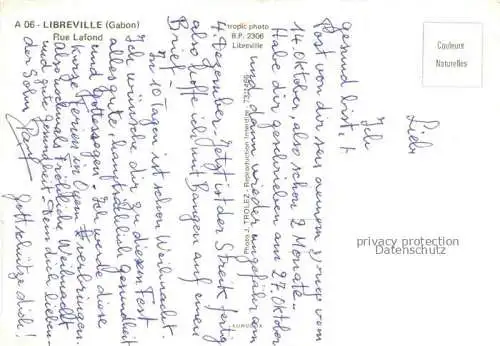 A 06 - LIBREVILLE (Gabon)
Rue Lafond
tropic photo
B.P. 2306
Libreville
Couleurs
Naturelles
Photo J. TROLEZ - Reproduction Interdite
privacy protection
Datenschutz
Lieb
Ich
gesund bist, +
Post von dir
vom
14. Oktober, also schon 2 Monate.
Habe dir geschrieben am 27 Oktober
und dann wieder ungefähr am
4. Dezember. Jetzt ist der Streik fertig
also hoffe ich mit Bangen auf einen
Brief.
In 10 Tagen ist schon Weihnacht.
Ich wünsche dir zu diesem Fest
alles gute, hauptsächlich gesundheit
und Gottessegen. Ich werde diese
kurze Ferien in Oyem verbringen.
Also nochmals Fröhliche Weihnacht
und gute gesundheit. Dein dich lieben-
der Sohn
Gott schütze dich!